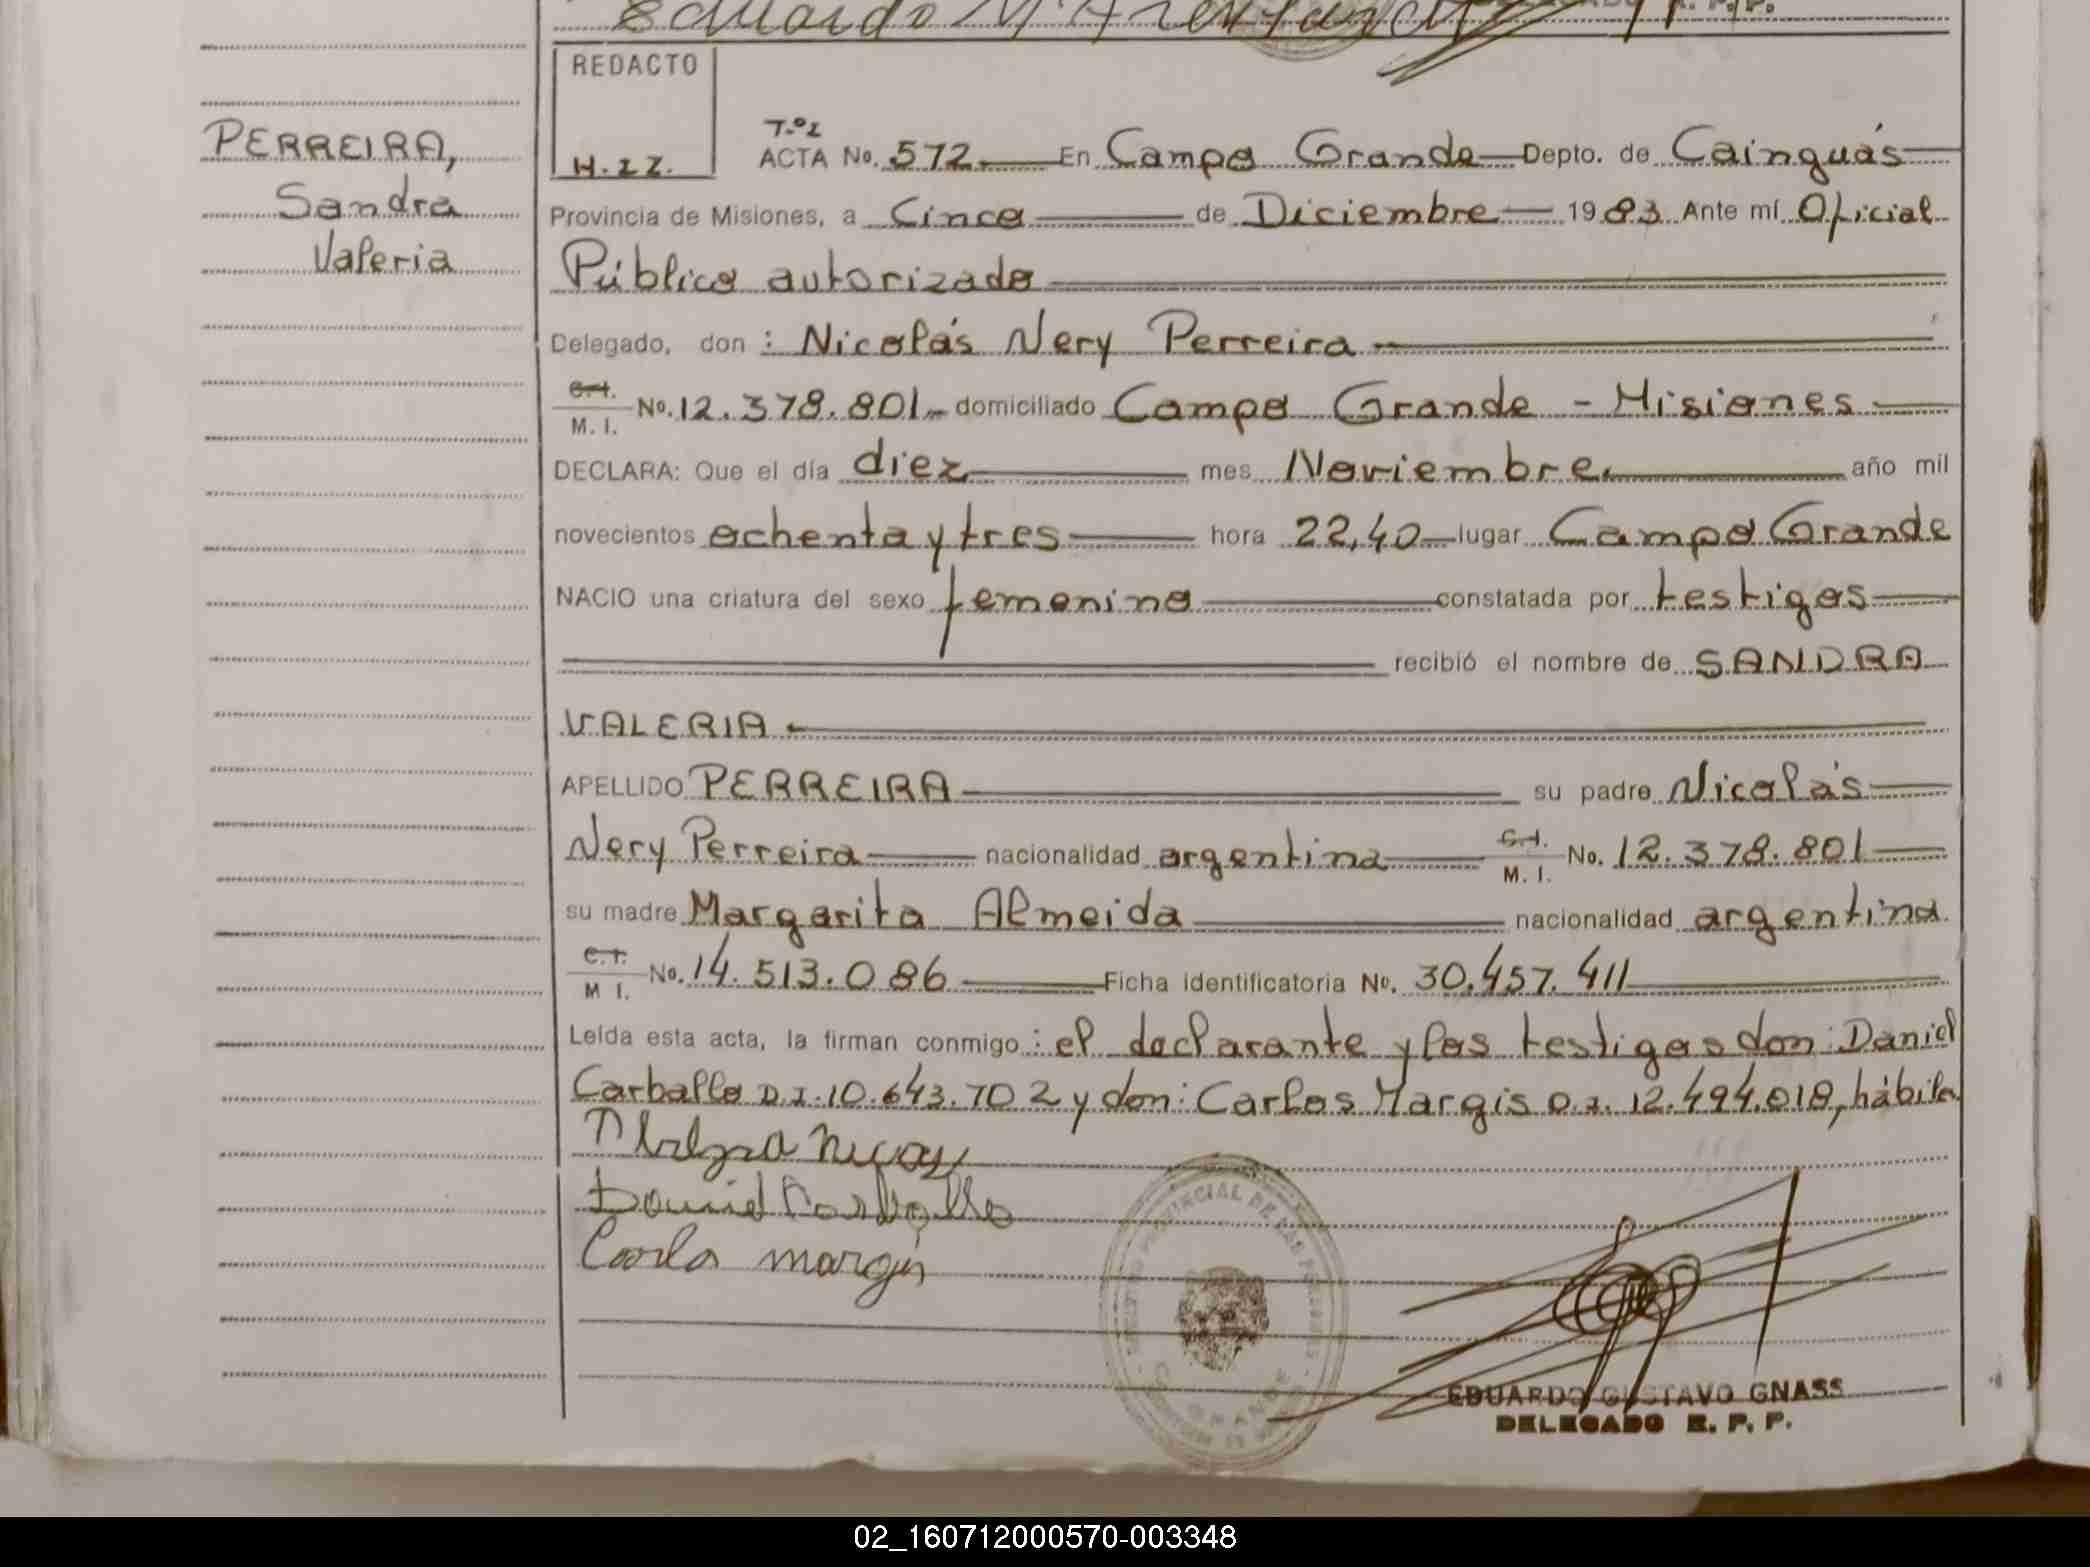 Eduardo
R. P. P.
REDACTO
H.I.Z.
PERREIRA,
Sandra
Valeria
T.º I
ACTA No. 572. En Campo Grande Depto. de Cainguás
Provincia de Misiones, a Cinco de Diciembre 1983 Ante mí Oficial
Público autorizado
Delegado, don : Nicolás Nery Perreira
C.I. / M. I. No. 12.378.801 domiciliado Campo Grande - Misiones
DECLARA: Que el día diez mes Noviembre año mil
novecientos ochenta y tres hora 22,40 lugar Campo Grande
NACIO una criatura del sexo femenino constatada por testigos
recibió el nombre de SANDRA
VALERIA
APELLIDO PERREIRA su padre Nicolás
Nery Perreira nacionalidad argentina C.I. / M. I. No. 12.378.801
su madre Margarita Almeida nacionalidad argentina
C.I. / M I. No. 14.513.086 Ficha identificatoria No. 30.457.411
Leída esta acta, la firman conmigo : el declarante y los testigos don: Daniel
Carballo D.I. 10.643.702 y don: Carlos Margis D.I. 12.494.018, hábiles
Daniel Carballo
Carlos margis
PROVINCIAL DE LAS PERSONAS
EDUARDO GUSTAVO GNASS
DELEGADO R. P. P.
02_160712000570-003348